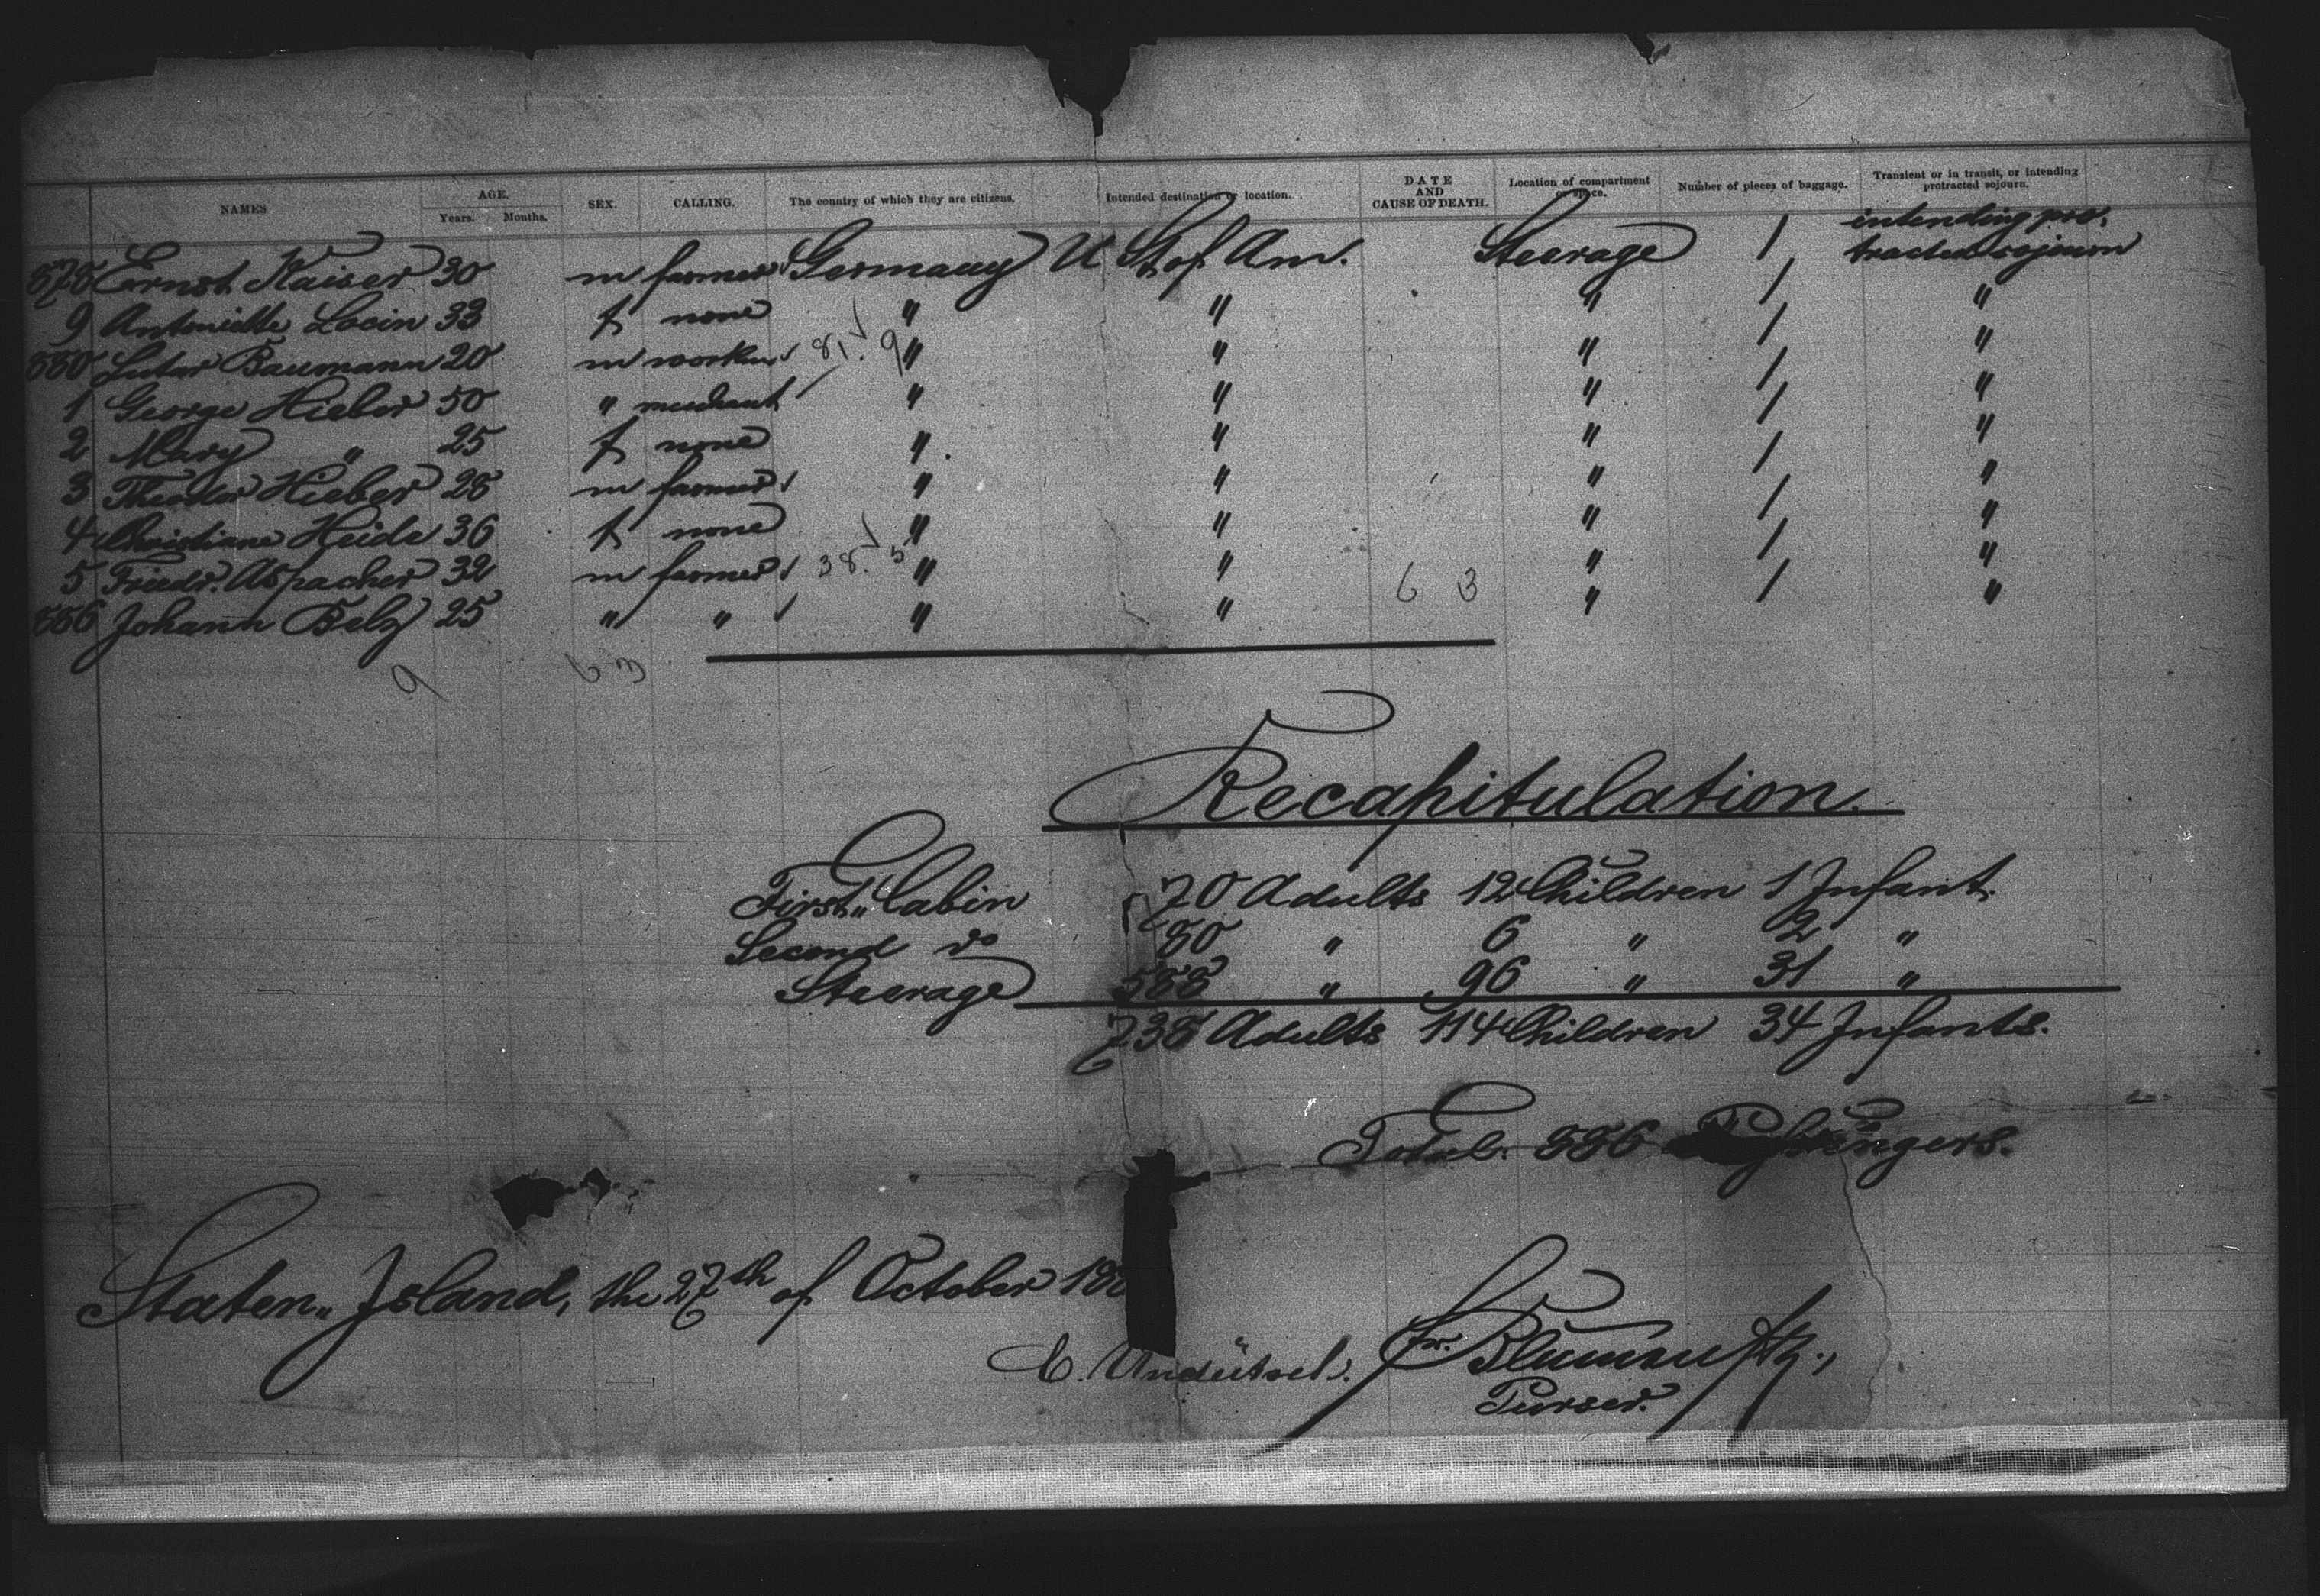 NAMES AGE. Years. Months. SEX. CALLING. The country of which they are citizens. Intended destination or location. DATE AND CAUSE OF DEATH. Location of compartment or space. Number of pieces of baggage. Transient or in transit, or intending protracted sojourn.
878 Ernst Kaiser 30 m farmer Germany U St. of Am. Steerage 1 intending pro- tracted sojourn
9 Antoniette 33 f none " " " 1 "
880 Baumann 20 m worker " " " 1 "
1 George Hieber 50 " merchant " " " 1 "
2 Mary " 25 f none " " " 1 "
3 Theodor Hieber 28 m farmer " " " 1 "
4 Christiane Heide 36 f none " " " 1 "
5 Friedr. Aspacher 32 m farmer " " " 1 "
886 Johann Belz 25 " " " " " 1 "
Recapitulation.
First " Cabin 70 Adults 12 Children 1 Infant.
Second do 80 " 6 " 2 "
Steerage 588 " 96 " 31 "
738 Adults 114 Children 34 Infants.
Total. 886 Passengers.
Staten " Island, the 27th of October 188
Purser.